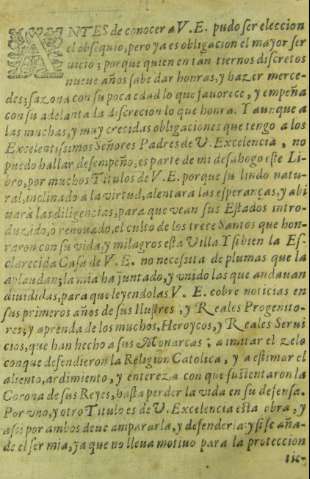 ANTES de conocer a V. E. pudo ser eleccion
el obsequio, pero ya es obligacion el mayor ser
uicio; porque quien en tan tiernos discretos
nueue años sabe dar honras, y hazer merce-
des; sazona con su poca edad lo que fauorece, y empeña
con su adelanta la discrecion lo que honra. Y aunque a
las muchas, y muy crecidas obligaciones que tengo a los
Excelentissimos Señores Padres de V. Excelencia, no
puedo hallar desempeño; es parte de mi desahogo este Li-
bro, por muchos Titulos de V. E. porque su lindo natu-
ral, inclinado a la virtud, alentara las esperanças, y abi
uarà las diligencias, para que vean sus Estados intro-
duzido, o renouado, el culto de los trece Santos que hon-
raron con su vida, y milagros esta Villa Y si bien la Es-
clarecida Casa de V. E. no necesita de plumas que la
aplaudan; la mia ha juntado, y vnido las que andauan
diuididas, para que leyendolas V. E. cobre noticias en
sus primeros años de sus Ilustres, y Reales Progenito-
res; y aprenda de los muchos, Heroycos, y Reales Serui
cios, que han hecho a sus Monarcas; a imitar el zelo
con que defendieron la Religion Catolica, y a estimar el
aliento, ardimiento, y entereza con que sustentaron la
Corona de sus Reyes, hasta perder la vida en su defensa.
Por vno, y otro Titulo es de V. Excelencia esta obra, y
assi por ambos deue ampararla, y defenderla: y si se aña-
de el ser mia, ya que no lleua motiuo para la proteccion